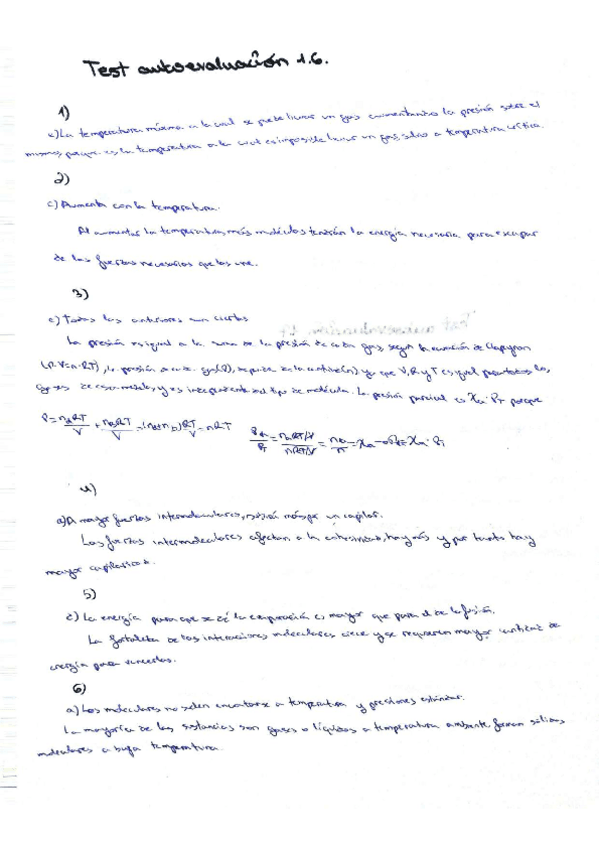 Test autoevaluación 1.6.
1)
c) La temperatura máxima a la cual se puede licuar un gas aumentando la presión sobre el
mismo, porque es la temperatura a la cual es imposible licuar un gas, temperatura crítica.
2)
c) Aumenta con la temperatura.
Al aumentar la temperatura, más moléculas tendrán la energía necesaria para escapar
de las fuerzas necesarias que las une.
3)
e) Todas las anteriores son ciertas
La presión es igual a la suma de la presión de cada gas, según la ecuación de Clapeyron
(P·V=n·R·T), la presión de cada gas, de la y que V, R y T es igual para todos los
gases de esa mezcla, y es independiente del tipo de molécula. La presión parcial es Xa·PT porque
P = naRT/V + nbRT/V = (na+nb)RT/V = nRT Pa/PT = naRT/V / nRT/V = na/n = Xa → Pa = Xa·PT
4)
a) A mayor fuerzas intermoleculares, más por un capilar.
Las fuerzas intermoleculares afectan a la hay más y por tanto hay
mayor
5)
c) La energía para que se dé la evaporación es mayor que para el de la fusión.
La fortaleza de las interacciones moleculares crece y se requieren mayor cantidad de
energía para vencerlas.
6)
a) Los moleculares no suelen encontrarse a temperatura y presiones estándar.
La mayoría de las sustancias son gases o líquidos a temperatura ambiente, forman sólidos
moleculares a baja temperatura.